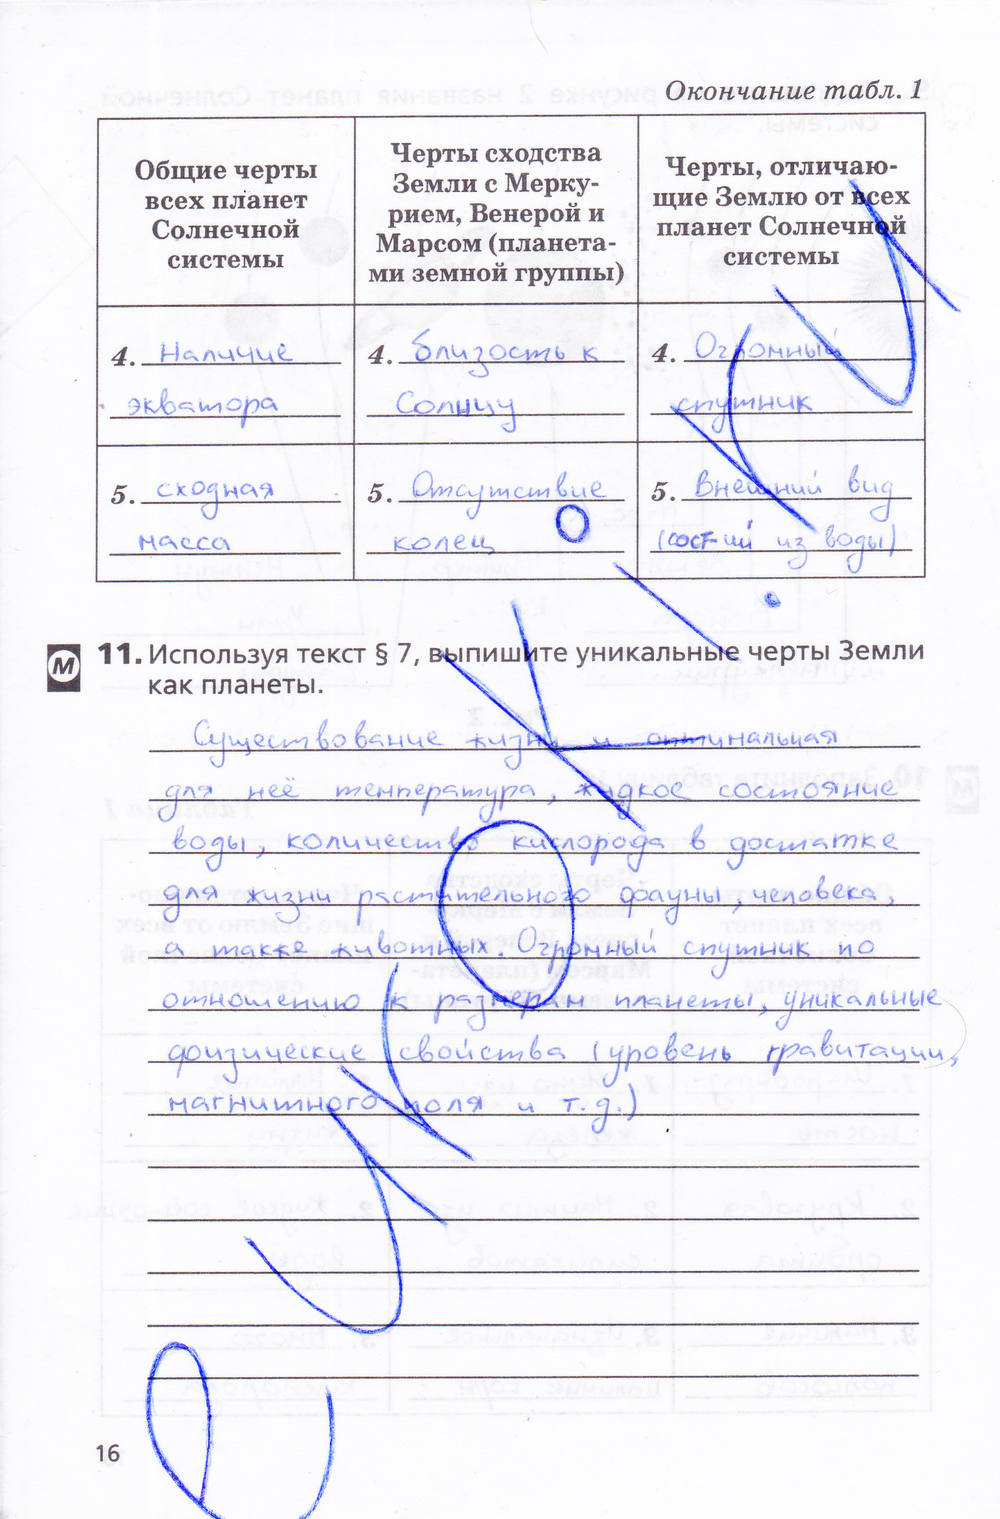 Окончание табл. 1
Общие черты
всех планет
Солнечной
системы
Черты сходства
Земли с Мерку-
рием, Венерой и
Марсом (планета-
ми земной группы)
Черты, отличаю-
щие Землю от всех
планет Солнечной
системы
4. Наличие
экватора
4. близость к
Солнцу
4. Огромный
спутник
5. сходная
масса
5. Отсутствие
колец
5. Внешний вид
(сост-ий из воды)
М 11. Используя текст § 7, выпишите уникальные черты Земли
как планеты.
Существование жизни и оптинальная
для неё температура, жидкое состояние
воды, количество кислорода в достатке
для жизни растительного фауны, человека,
а также животных. Огромный спутник по
отношению к размерам планеты, уникальные
физические свойства (уровень гравитации,
магнитного поля и т.д.)
16